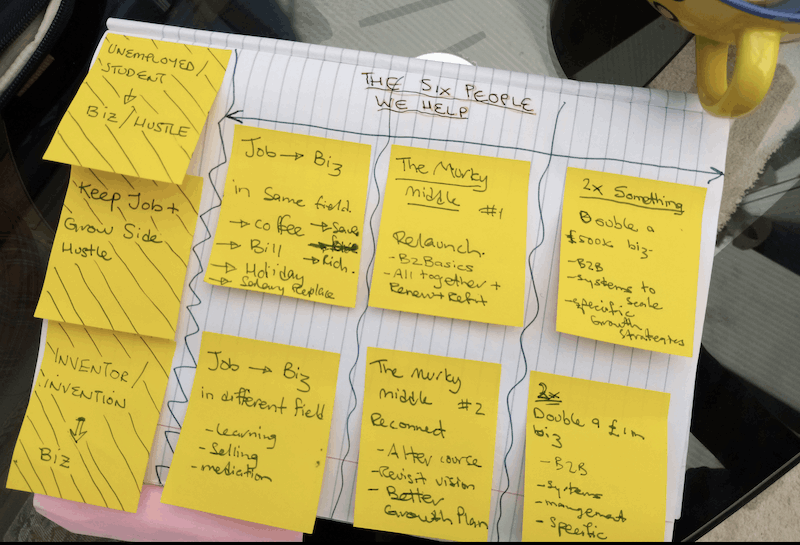 THE SIX PEOPLE
WE HELP
UNEMPLOYED/
STUDENT
↓
BIZ/HUSTLE
Keep Job +
Grow Side
Hustle
INVENTOR/
INVENTION
⇓
BIZ
Job → Biz
in Same field.
→ Coffee → Save
→ Bill
→ Rich.
→ Holiday
→ Salary Replace
Job → Biz
in different field
- Learning
- Selling
- mediation
The Murky
middle #1
Relaunch.
- B2Basics
- All together +
Renew + Refit
The murky
middle #2
Reconnect
- Alter course
- Revisit vision
- Better
Growth Plan
2x Something
Double a
£500k biz-
- B2B
- Systems to
Scale
- Specific
Growth
Strategies
2x
Double a £1m
biz
- B2B
- Systems
- management
- Specific